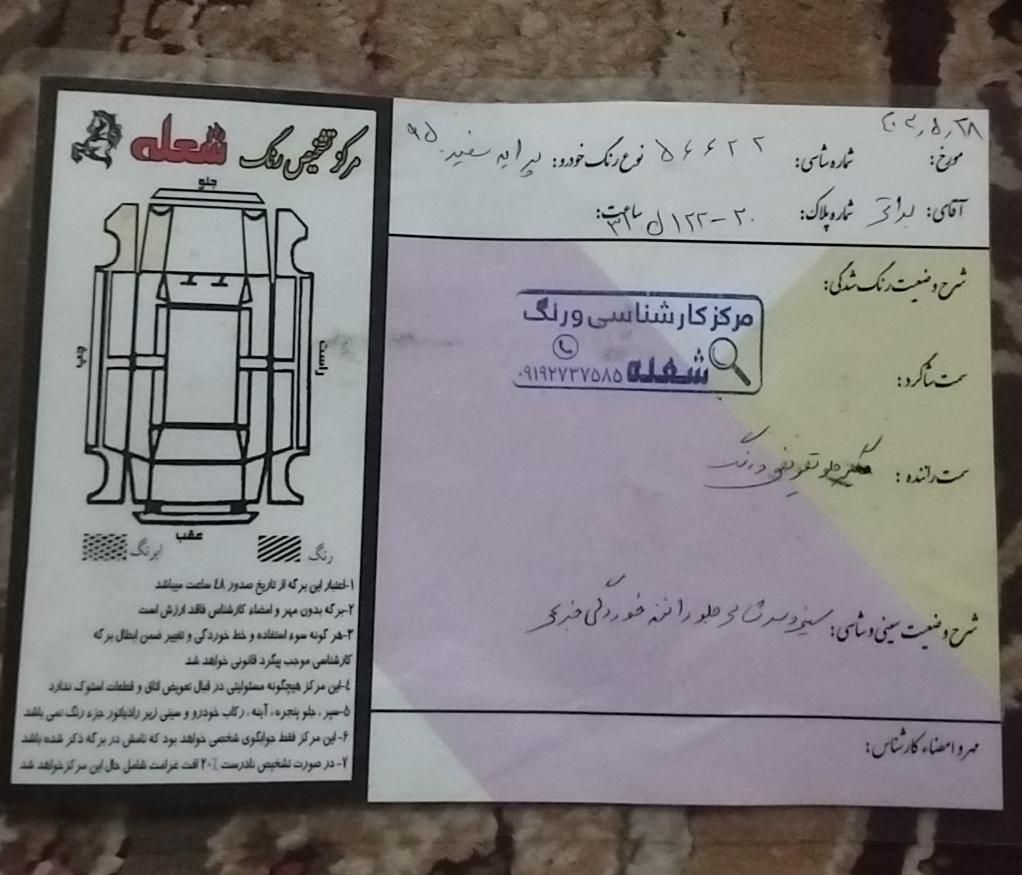 ۴۰۳,۵,۲۸
مورخ: شماره شاسی: ۵۶۶۲۲ نوع رنگ خودرو: پراید سفید ۹۵
آقای: شماره پلاک: ۲۰-۱۲۲ ل ۳۱ ساعت:
شرح وضعیت رنگ شدگی:
مرکز کارشناسی و رنگ
شعله
۰۹۱۹۲۷۳۷۵۸۵
سمت شاگرد:
سمت راننده: گلگیر جلو تعویض و رنگ
شرح وضعیت سینی و شاسی: سینی و سر شاسی جلو راننده خوردگی جزئی
مهر و امضاء کارشناس:
مرکز تشخیص رنگ شعله
جلو
راست
چپ
عقب
رنگ
لیرنگ
۱-اعتبار این برگه از تاریخ صدور ٤٨ ساعت میباشد
۲-برگه بدون مهر و امضاء کارشناس فاقد ارزش است
۳-هر گونه سوء استفاده و خط خوردگی و تغییر ضمن ابطال برگه
کارشناسی موجب پیگرد قانونی خواهد شد
٤-این مرکز هیچگونه مسئولیتی در قبال تعویض اتاق و قطعات استوک ندارد
۵-سپر ، جلو پنجره ، آینه ، رکاب خودرو و سینی زیر رادیاتور جزء رنگ نمی باشد
۶-این مرکز فقط جوابگوی شخصی خواهد بود که نامش در برگه ذکر شده باشد
۷-در صورت تشخیص نادرست ۲۰٪ افت غرامت شامل حال این مرکز خواهد شد